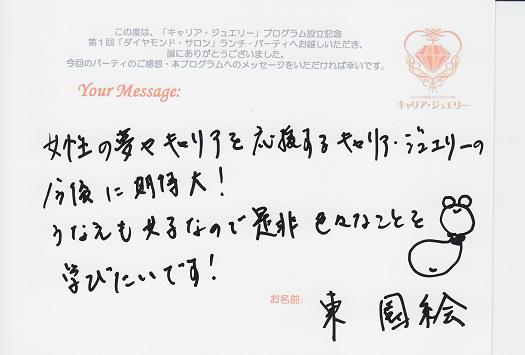 この度は、「キャリア・ジュエリー」プログラム設立記念
第1回「ダイヤモンド・サロン」ランチ・パーティへお越しいただき、
誠にありがとうございました。
今回のパーティのご感想・本プログラムへのメッセージをいただければ幸いです。
キャリア・ジュエリー
Your Message:
女性の夢やキャリアを応援するキャリア・ジュエリーの
今後に期待大!
うなえも女子なので是非色々なことを
学びたいです!
お名前:
東 園絵